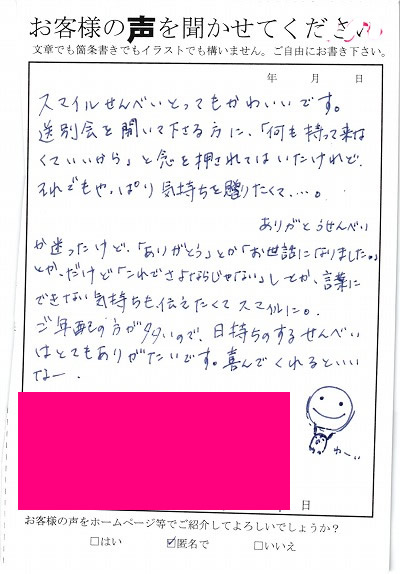 お客様の声を聞かせてください
文章でも箇条書きでもイラストでも構いません。ご自由にお書き下さい。
年　月　日
スマイルせんべいとってもかわいいです。
送別会を開いて下さる方に、「何も持って来な
くていいから」と念を押されてはいたけれど、
それでもやっぱり気持ちを贈りたくて…。
ありがとうせんべい
か迷ったけど、「ありがとう」とか「お世話になりました。」
とか、だけど「これでさよならじゃない」しとか、言葉に
できない気持ちも伝えたくてスマイルに。
ご年配の方が多いので、日持ちのするせんべい
はとてもありがたいです。喜んでくれるといい
なー。
わーい
日
お客様の声をホームページ等でご紹介してよろしいでしょうか？
□はい　☑匿名で　□いいえ